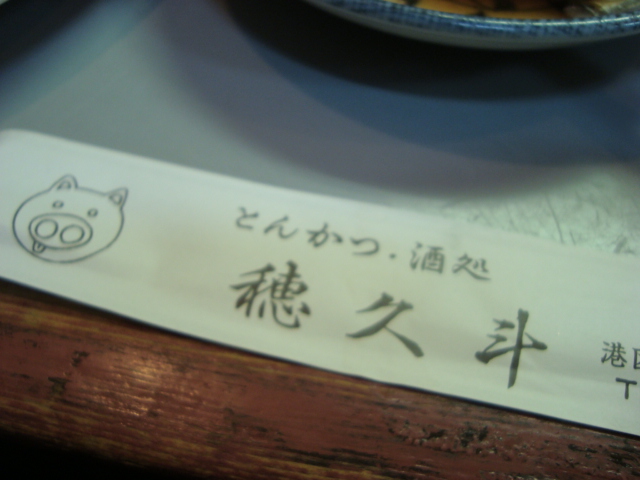 とんかつ・酒処
穂久斗
港区
T